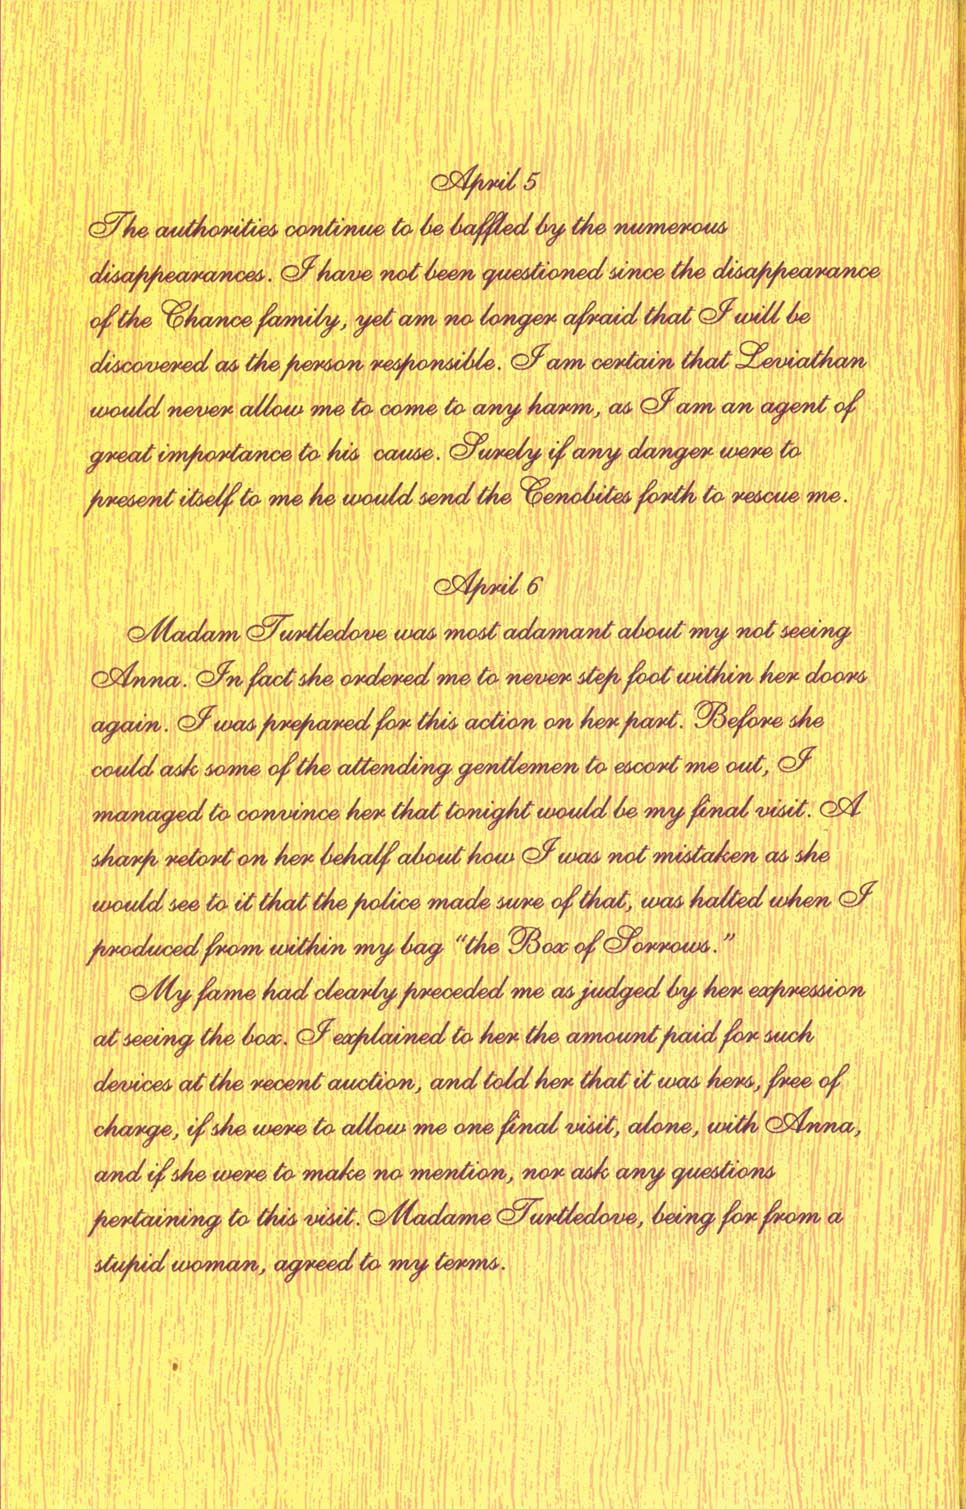 April 5
The authorities continue to be baffled by the numerous
disappearances. I have not been questioned since the disappearance
of the Chance family, yet am no longer afraid that I will be
discovered as the person responsible. I am certain that Leviathan
would never allow me to come to any harm, as I am an agent of
great importance to his cause. Surely if any danger were to
present itself to me he would send the Cenobites forth to rescue me.
April 6
Madam Turtledove was most adamant about my not seeing
Anna. In fact she ordered me to never step foot within her doors
again. I was prepared for this action on her part. Before she
could ask some of the attending gentlemen to escort me out, I
managed to convince her that tonight would be my final visit. A
sharp retort on her behalf about how I was not mistaken as she
would see to it that the police made sure of that, was halted when I
produced from within my bag “the Box of Sorrows.”
My fame had clearly preceded me as judged by her expression
at seeing the box. I explained to her the amount paid for such
devices at the recent auction, and told her that it was hers, free of
charge, if she were to allow me one final visit, alone, with Anna,
and if she were to make no mention, nor ask any questions
pertaining to this visit. Madame Turtledove, being for from a
stupid woman, agreed to my terms.